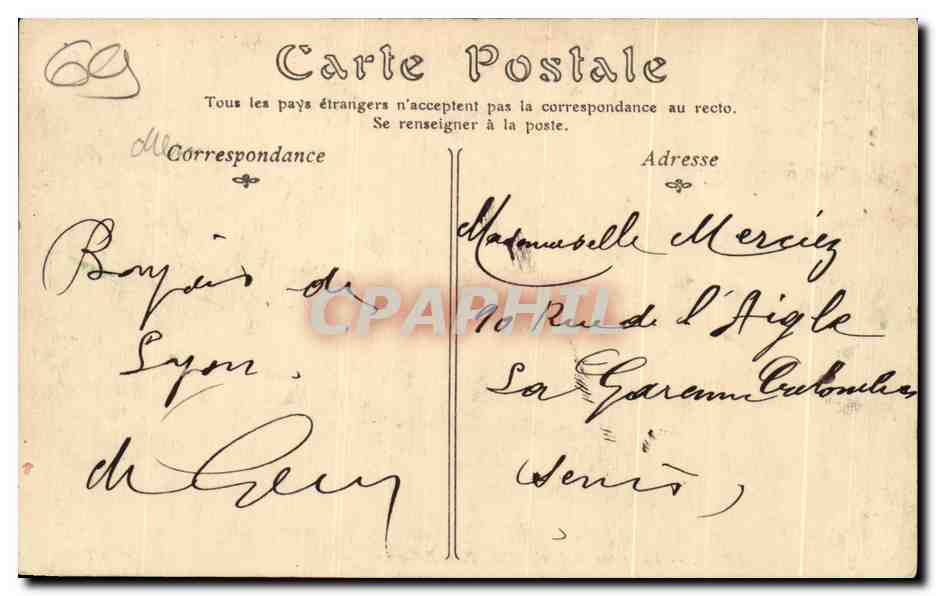 69
Carte Postale
Tous les pays étrangers n'acceptent pas la correspondance au recto.
Se renseigner à la poste.
Correspondance
Adresse
Bonjour de
Lyon.
Mademoiselle Merciez
90 Rue de l'Aigle
La Garenne Colombes
Seine
CPAPHIL